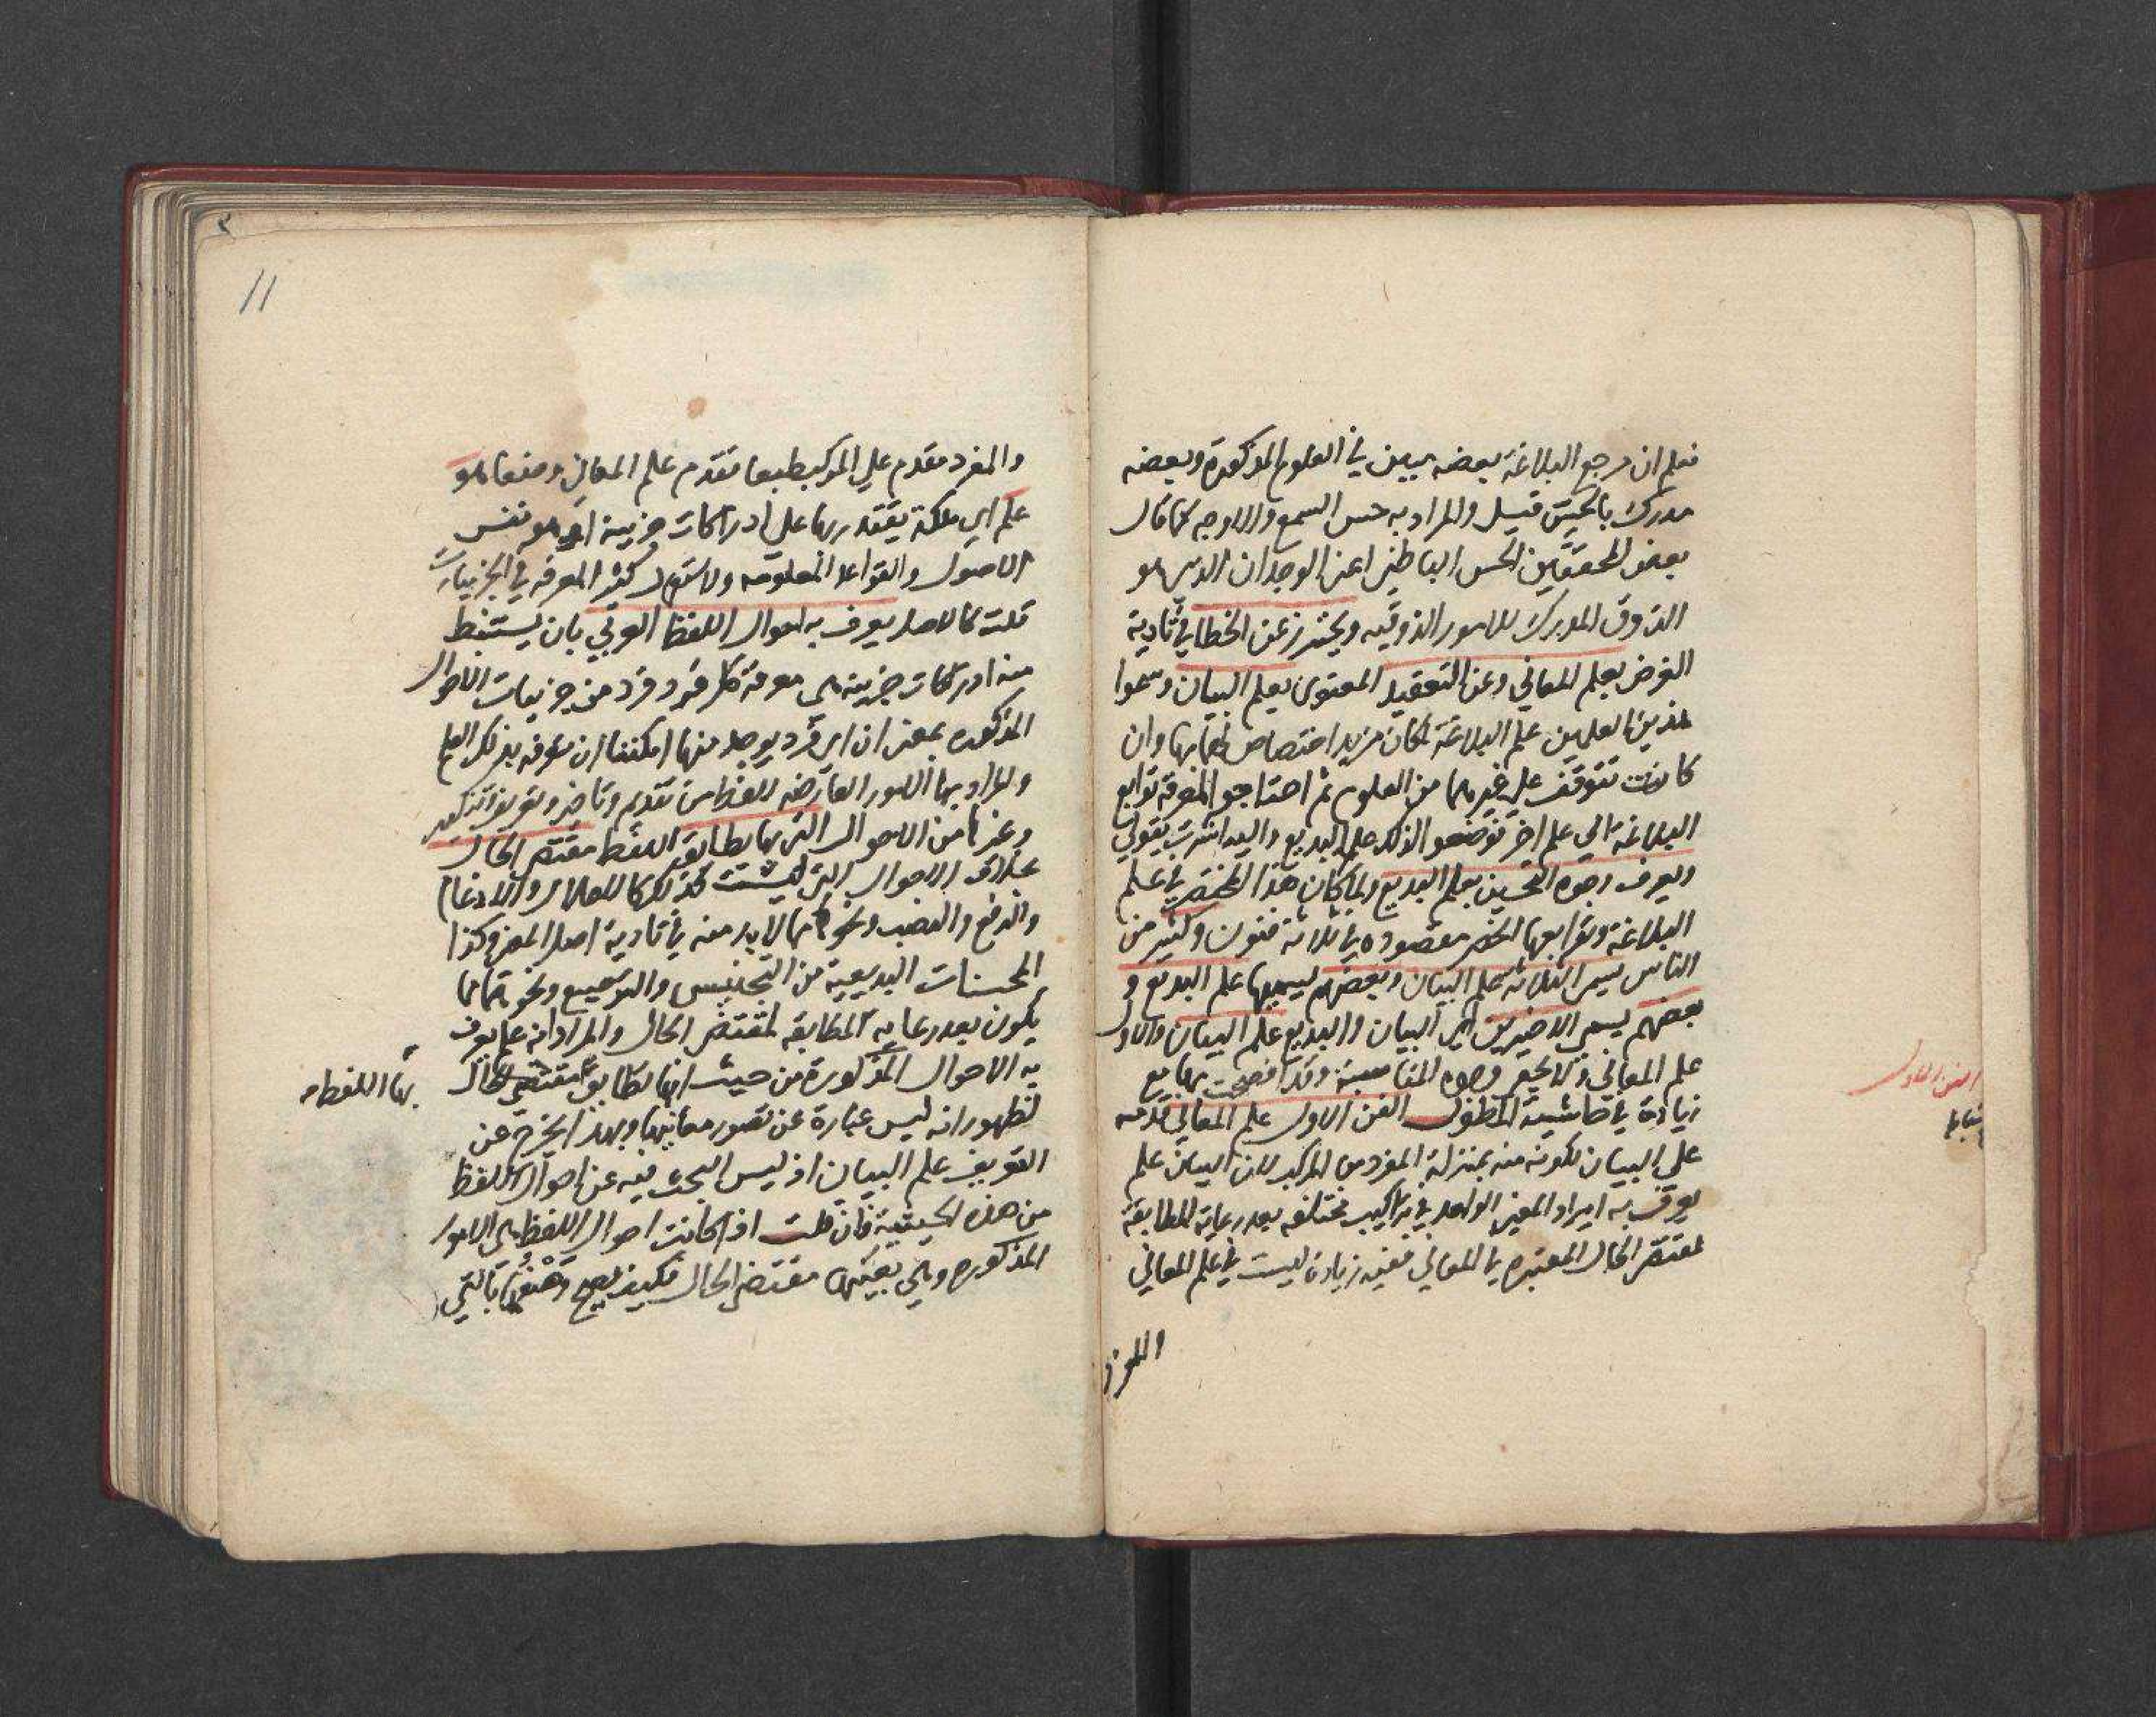 فعلم ان مرجع البلاغة بعضه يبين في العلوم المذكورة وبعضه
مدرك بالحس قيل والمراد به حس السمع والاوجه كما قال
بعض المحققين الحس الباطني اعني الوجدان الذي هو
الذوق المدرك للامور الذوقيه ويحترز عن الخطا في تادية
الغرض بعلم المعاني وعن التعقيد المعنوي بعلم البيان وسموا
هذين العلمين علم البلاغة لمكان مزيد اختصاص لهما بها وان
كانت تتوقف على غيرهما من العلوم ثم احتاجو المعرفة توابع
البلاغة الى علم اخر فوضعو الذلك علم البديع واليه اشرت بقولي
ويعرف وجوه التحسين بعلم البديع ولما كان هذا المختصر في علم
البلاغة وتوابعها انحصر مقصوده في ثلاثة فنون وكثير من
الناس يسمى الثلاثه علم البيان وبعضهم يسميها علم البديع و
بعضهم يسمى الاخيرين اي البيان والبديع علم البيان والاول
علم المعاني ولا يخفى وجوه المناسبة وقد اوضحت بها مع
زيادة في حاشية المطول الفن الاول علم المعاني قدمه
على البيان لكونه منه بمنزلة المفرد من المركب لان البيان علم
يعرف به ايراد المعنى الواحد في تراكيب مختلفه بعد رعاية المطابقة
لمقتضى الحال المعتبره في المعاني ففيه زيادة ليست في علم المعاني
الفن الاول
والمفرد مقدم على المركب طبعا فقدم علم المعاني وضعا هو
علم اي ملكة يقتدر بها على ادراكات جزيية او هو نفس
الاصول والقواعد المعلومه ولاستعمال كثير المعرفه في الجزييات
قلت كالاصل يعرف به احوال اللفظ العربي بان يستنبط
منه ادراكات جزيية هي معرفة كل فرد فرد من جزييات الاحوال
المذكوره بمعنى ان اي فرد يوجد منها امكننا ان نعرفه بذلك العلم
والمراد بها الامور العارضه للفظ من تقديم وتاخير وتعريف وتنكير
وغيرها من الاحوال التي بها يطابق اللفظ مقتضى الحال
بخلاف الاحوال التي ليست كذلك كالاعلال والادغام
والرفع والنصب ونحوها مما لا بد منه في تادية اصل المعنى وكذا
المحسنات البديعية من التجنيس والترصيع ونحوهما مما
يكون بعد رعاية المطابقه لمقتضى الحال والمراد انه علم يعرف
به الاحوال المذكورة من حيث انها يطابق مقتضى الحال
بها اللفظ
لظهور انه ليس عبارة عن تصور معانيها وبهذا يخرج عن
التعريف علم البيان اذ ليس البحث فيه عن احوال اللفظ
من هذه الحيثية فان قلت اذا كانت احوال اللفظ هي الامور
المذكوره وهي بعينها مقتضى الحال فكيف يصح وصفها بالتي
11